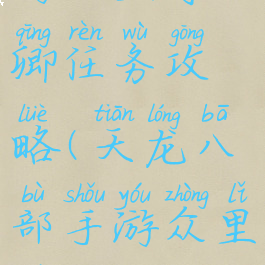 qīng rèn wù gōng
卿任务攻
lüè tiān lóng bā
略(天龙八
bù shǒu yóu zhòng lǐ
部手游众里